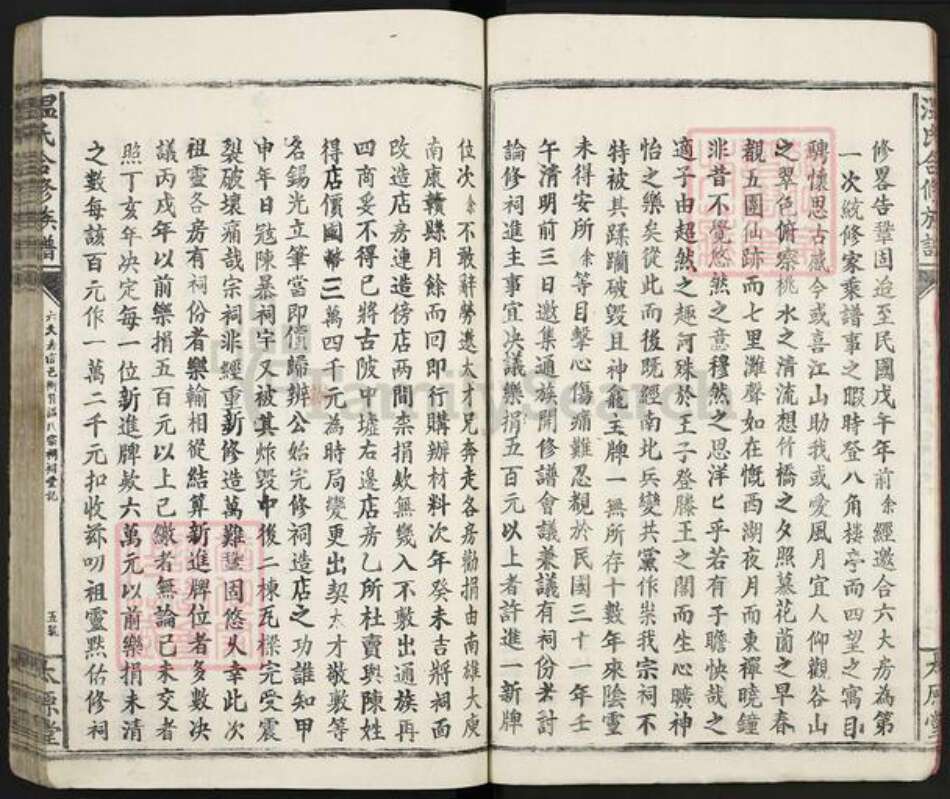 修畧告鞏固迨至民國戊午年前余經邀合六大房為第
一次統修家乘譜事之暇時登八角樓亭而四望之寓目
騁懷思古蔵今或喜江山助我或愛風月宜人仰觀谷山
之翠色俯察桃水之清流想竹橋之夕照慕花蘭之早春
觀五團仙跡而七里灘聲如在慨西湖夜月而東禪曉鐘
非昔不覺悠然之意穆然之思洋匕乎若有子瞻快哉之
適子由超然之趣河殊於王子登滕王之閣而生心曠神
怡之樂矣從此而後既經南北兵變共黨作祟我宗祠不
特被其蹂躪破毀且神龕主牌一無所存十數年來陰靈
未得安所余等目擊心傷痛難忍覩於民國三十一年壬
午清明前三日邀集通族開修譜會議兼議有祠份者討
論修祠進主事宜决議樂捐五百元以上者許進一新牌
位次余不敢辭勞邀太才兄奔走各房勸捐由南雄大庾
南康贛縣月餘而回即行購辦材料次年癸未吉將祠面
改造店房連造傍店兩間柰捐欵無幾入不敷出通族再
四商妥不得已將古陂中墟右邊店房乙所杜賣與陳姓
得店價國幣三萬四千元為時局變更出契太才敬敷等
名錫光立筆當即價歸辦公始完修祠造店之功誰知甲
申年日寇陳暴祠宇又被其炸毀中後二棟瓦樑完受震
裂破壞痛哉宗祠非經重新修造萬難鞏固悠久幸此次
祖靈各房有祠份者樂輸相從結算新進牌位者多數决
議丙戌年以前樂捐五百元以上已繳者無論已未交者
照丁亥年决定每一位新進牌欵六萬元以前樂捐未清
之數每該百元作一萬二千元扣收茲叨祖靈默佑修祠
溫氏合修族譜
五
太原堂
溫氏合修族譜
太原堂
FamilySearch